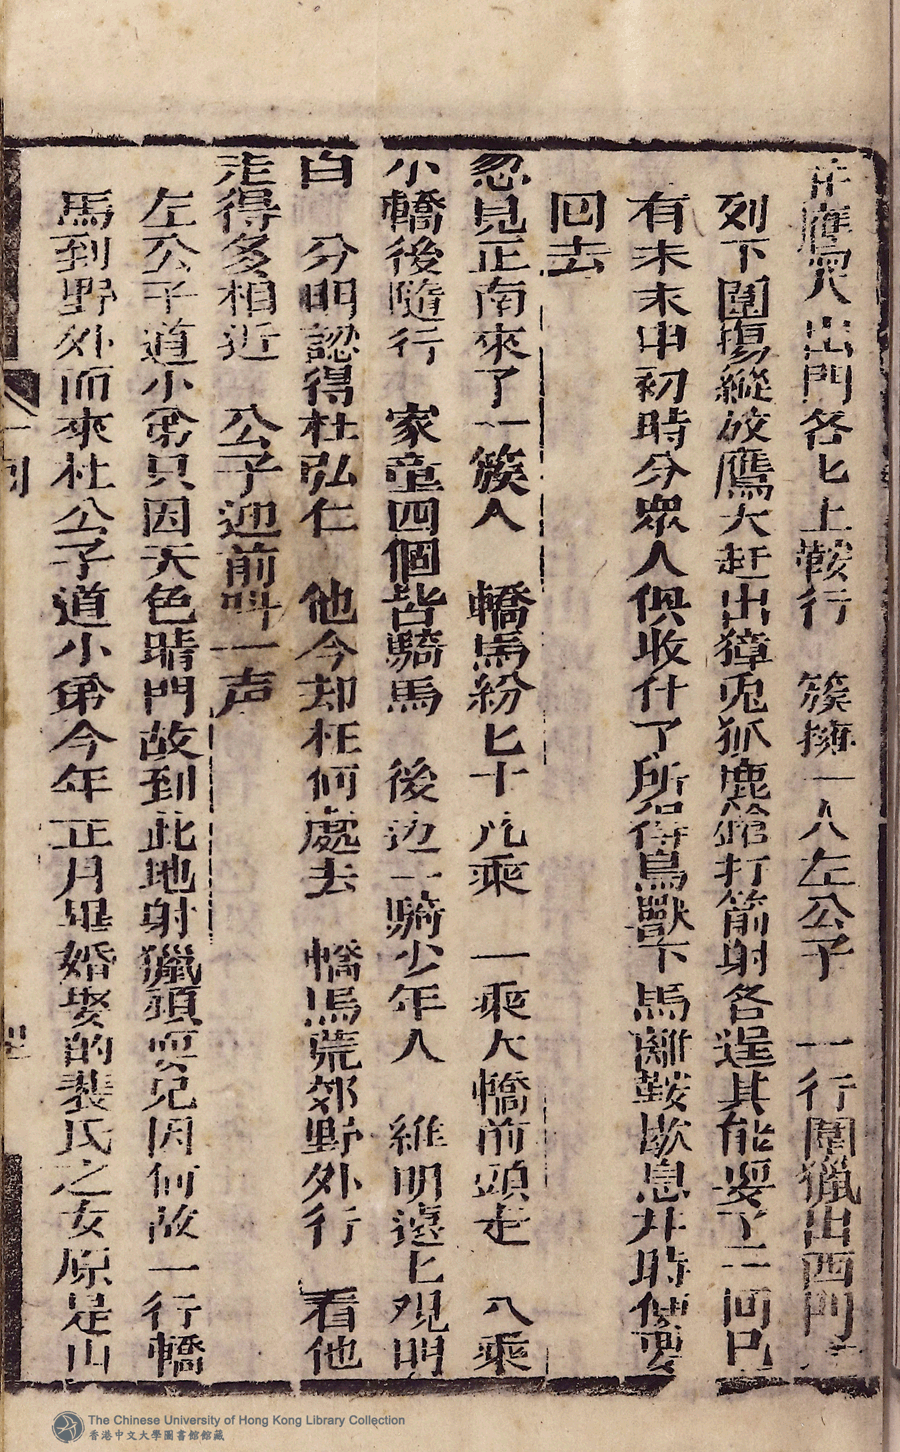 鷹閑人出門各匕上鞍行　簇擁一人左公子　一行圍獵出西門
列下圍塲縱放鷹犬赶出獐兎狐鹿鎗打箭射各逞其能耍了一回已
有未末申初時分衆人俱收什了所得鳥獸下馬離鞍歇息片時便要
回去
忽見正南來了一簇人　轎馬紛匕十几乘　一乘大轎前頭走　八乘
小轎後隨行　家童四個皆騎馬　後边一騎少年人　維明遠匕观明
白　分明認得杜弘仁　他今却在何處去　轎馬荒郊野外行　看他
走得多相近　公子迎前叫一声
左公子道小弟只因天色晴門故到此地射獵頑耍兄因何故一行轎
馬到野外而來杜公子道小弟今年正月畢婚娶的裴氏之女原是山
The Chinese University of Hong Kong Library Collection
香港中文大學圖書館館藏